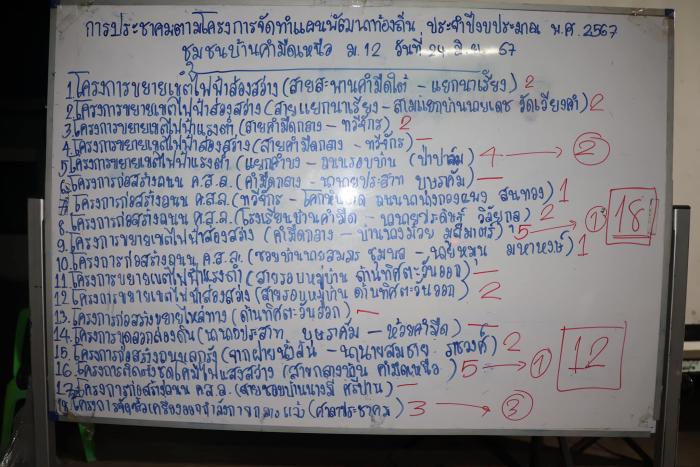 การประชาคมตามโครงการจัดทำแผนพัฒนาท้องถิ่น ประจำปีงบประมาณ พ.ศ. 2567
ชุมชนบ้านคำมืดเหนือ ม.12 วันที่ 24 มิ.ย. 67
1.โครงการขยายเขตไฟฟ้าส่องสว่าง (สายสะพานคำมืดใต้ - แยกนาเรียง) 2
2.โครงการขยายเขตไฟฟ้าส่องสว่าง (สายแยกนาเรียง - สามแยกบ้านนายเดช วัดเวียงคำ) 2
3.โครงการขยายเขตไฟฟ้าแรงต่ำ (สายคำมืดกลาง - ทวีจักร) 2
4.โครงการขยายเขตไฟฟ้าส่องสว่าง (สายคำมืดกลาง - ทวีจักร) -
5.โครงการขยายเขตไฟฟ้าแรงต่ำ (แยก - ถนนรอบบ้าน (ป่าปาล์ม) 4 → 2
6.โครงการก่อสร้างถนน ค.ส.ล. (คำมืดกลาง - นานายประสาท บุษราคัม) -
7.โครงการก่อสร้างถนน ค.ส.ล. (ทวีจักร - สนทอง) 1
8.โครงการก่อสร้างถนน ค.ส.ล. (โรงเรียนบ้านคำมืด - นานายประดิษฐ์ วิลัยกุล) 2
9.โครงการขยายเขตไฟฟ้าส่องสว่าง (คำมืดกลาง - มูลิมาตร์) 5 → 1 18
10.โครงการก่อสร้างถนน ค.ส.ล. (ซอยบ้านนายสมภร ชุมพล - นายหมุน มหาหงษ์) 1
11.โครงการขยายเขตไฟฟ้าแรงต่ำ (สายรอบหมู่บ้าน ด้านทิศตะวันออก) -
12.โครงการขยายเขตไฟฟ้าส่องสว่าง (สายรอบหมู่บ้าน ด้านทิศตะวันออก) 2
13.โครงการก่อสร้างขยายไหล่ทาง (ด้านทิศตะวันออก) -
14.โครงการขุดลอกคลองดิน (นานายประสาท บุษราคัม - ห้วยคำมืด) -
15.โครงการก่อสร้างถนนลูกรัง (จากฝายน้ำล้น - นานายสมชาย ราชวงศ์) 2
16.โครงการติดตั้งชุดโคมไฟแสงสว่าง (สายกลางบ้าน คำมืดเหนือ) 5 → 1 12
17.โครงการก่อสร้างถนน ค.ส.ล. (สายซอยบ้านนางมี ศรีปาน) -
18.โครงการจัดซื้อเครื่องออกกำลังกายกลางแจ้ง (ศาลาประชาคม) 3 → 3